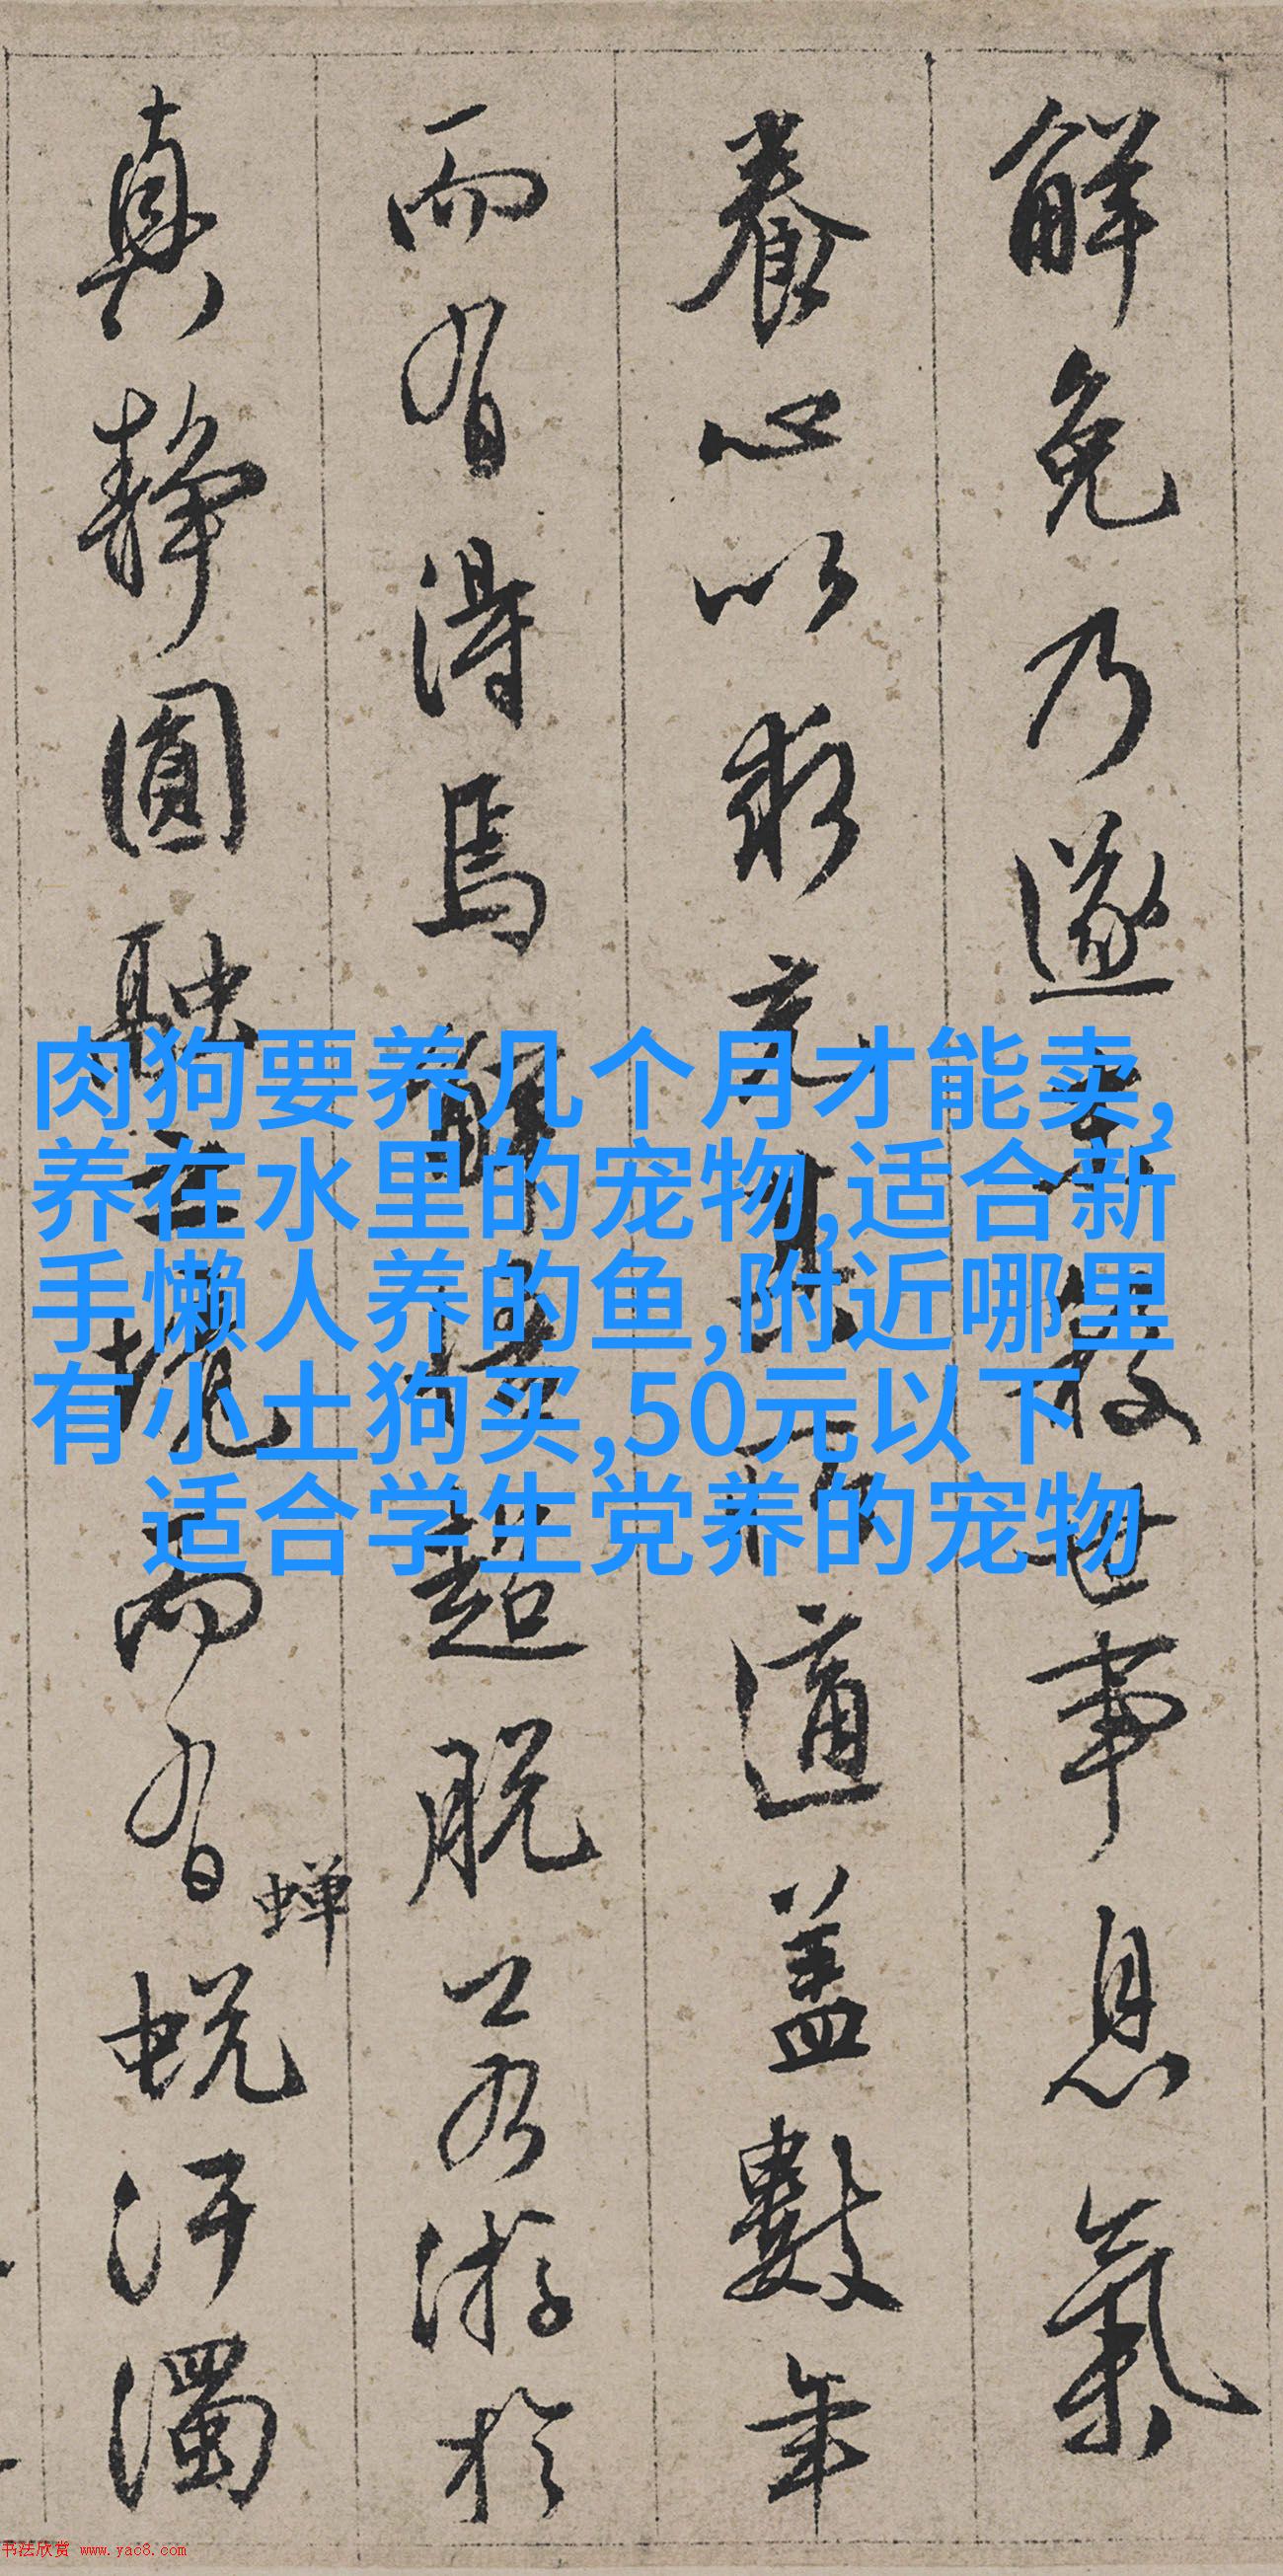 解免乃遂
事息氣
養心以求
道蓋數年
而有得焉
超脫
游於
真靜圓融
而有蟬
蛻汙濁
肉狗要养几个月才能卖,
养在水里的宠物,适合新
手懒人养的鱼,附近哪里
有小土狗买,50元以下
适合学生党养的宠物
书法欣赏 www.yac8.com